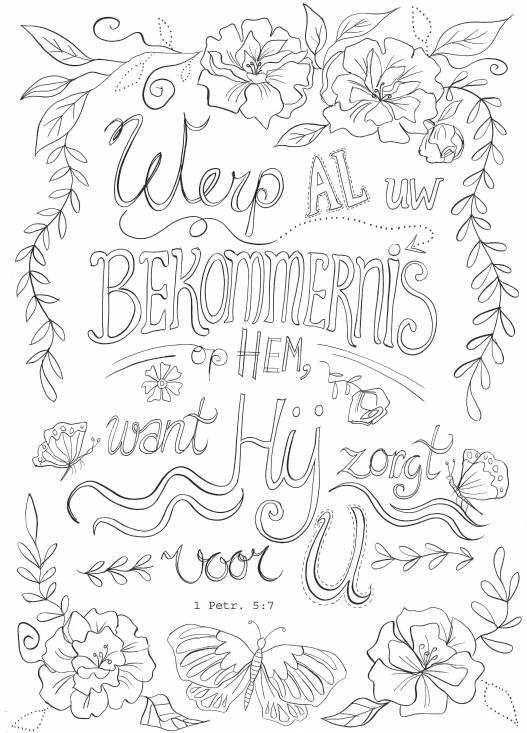 Werp AL uw
BEKOMMERNIS
op HEM,
want Hij zorgt
voor U
1 Petr. 5:7